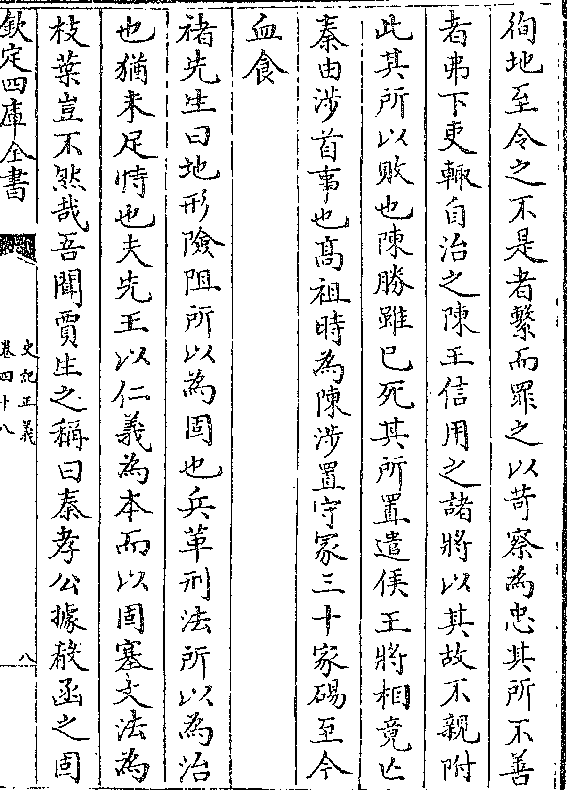 徇地至令之不是者繫而罪之以苛察為忠其所不善
者弗下吏輒自治之陳王信用之諸將以其故不親附
此其所以敗也陳勝雖已死其所置遣侯王將相竟亡
秦由涉首事也高祖時為陳涉置守冢三十家碭至今
血食
褚先生曰地形險阻所以為固也兵革刑法所以為治
也猶未足恃也夫先王以仁義為本而以固塞文法為
枝葉豈不然哉吾聞賈生之稱曰秦孝公據殽函之固
欽定四庫全書
史記正義
卷四十八
八